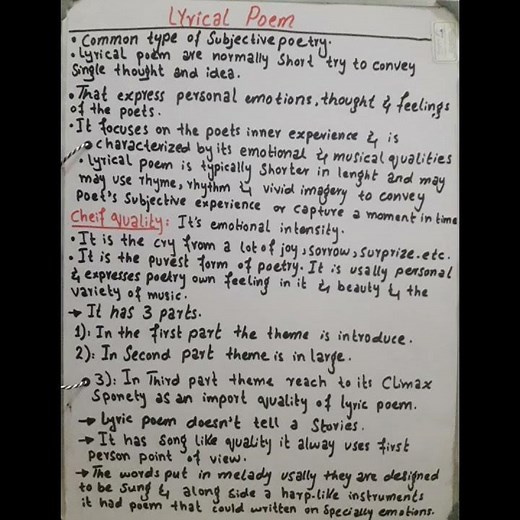 Lyrical Poem
• Common type of Subjective poetry.
• Lyrical poem are normally short try to convey
Single thought and idea.
• That express personal emotions, thought & feelings
of the poets.
• It focuses on the poets inner experience & is
characterized by its emotional & musical qualities
• Lyrical poem is typically shorter in lenght and may
may use rhyme, rhythm & vivid imagery to convey
Poet's Subjective experience or capture a moment in time
Cheif Quality: It's emotional intensity.
• It is the cry from a lot of joy, sorrow, surprize. etc.
• It is the purest form of poetry. It is usally personal
& expresses poetry own feeling in it & beauty & the
variety of music.
→ It has 3 parts.
1): In the first part the theme is introduce.
2): In Second part theme is in large.
3): In Third part theme reach to its Climax
Sponety as an import quality of lyric poem.
→ Lyric poem doesn't tell a Stories.
→ It has song like quality it alway uses first
person point of view.
→ The words put in melady usally they are designed
to be sung & along side a harp-like instruments
it had poem that could written on specially emotions.